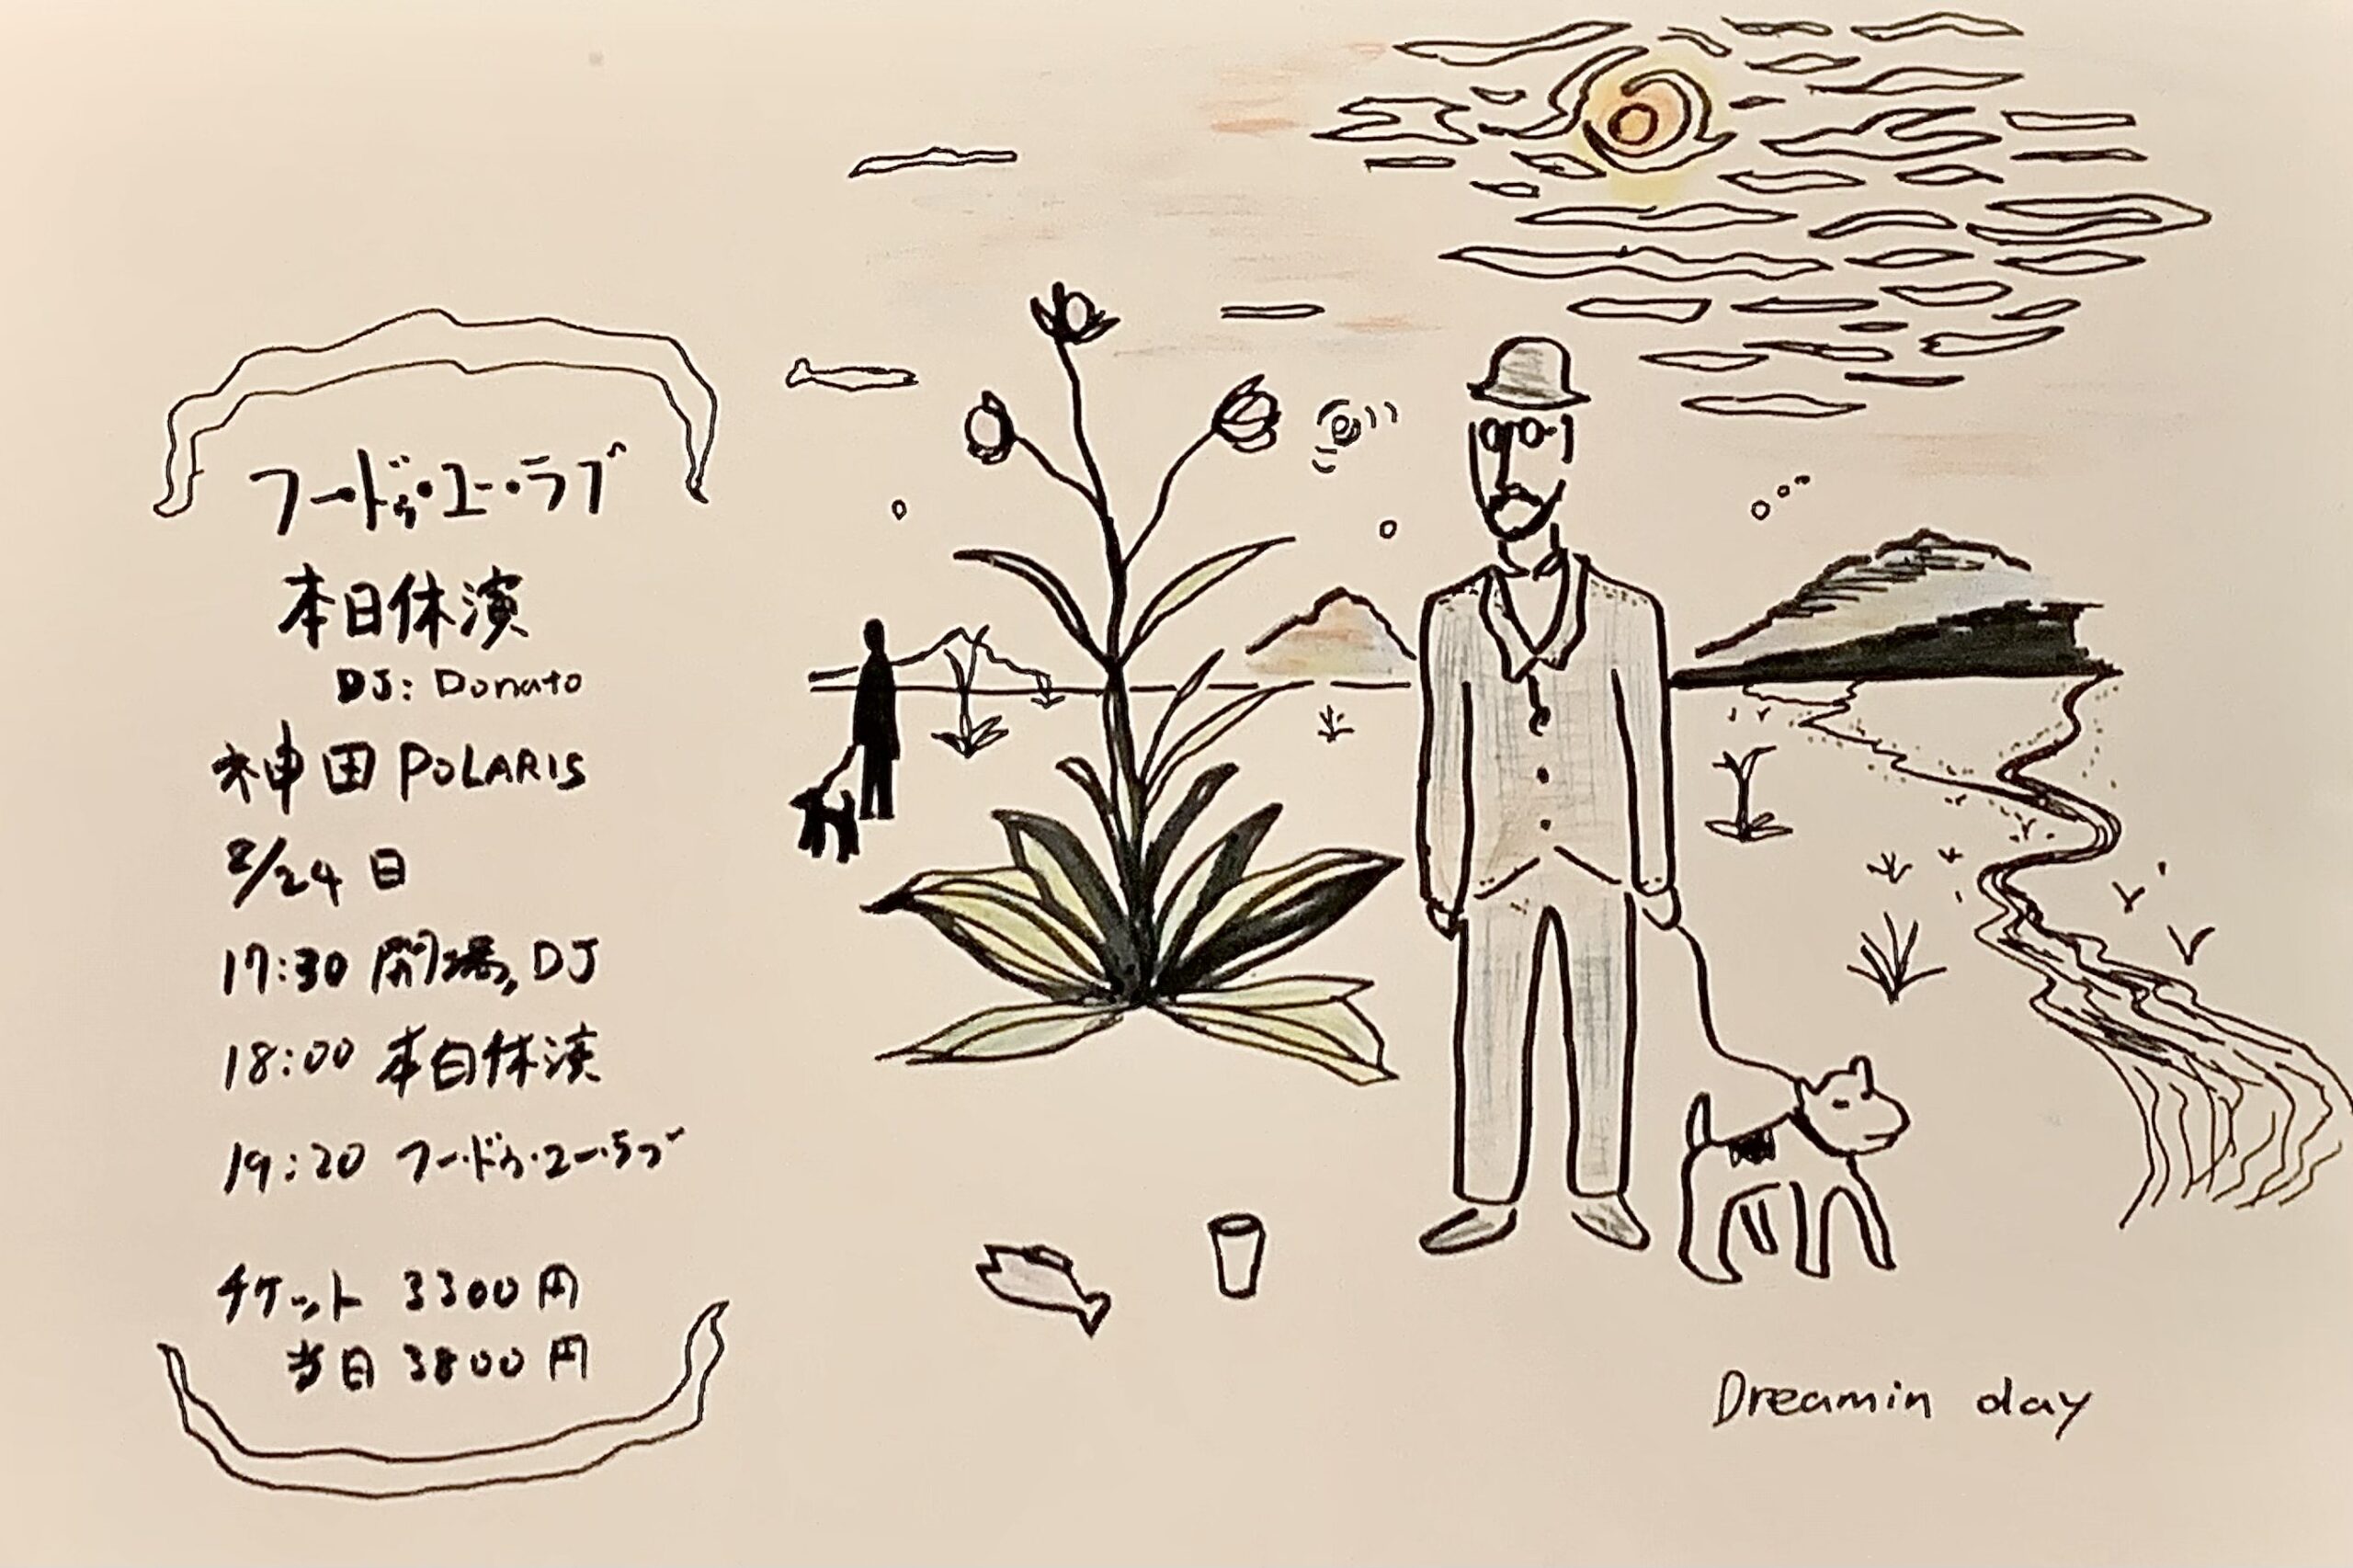 フー・ドゥ・ユー・ラブ
本日休演
DJ: Donato
神田 POLARIS
2/24 日
17:30 開場, DJ
18:00 本日休演
19:20 フー・ドゥ・ユー・ラブ
チケット 3300円
当日 3800円
Dreamin day